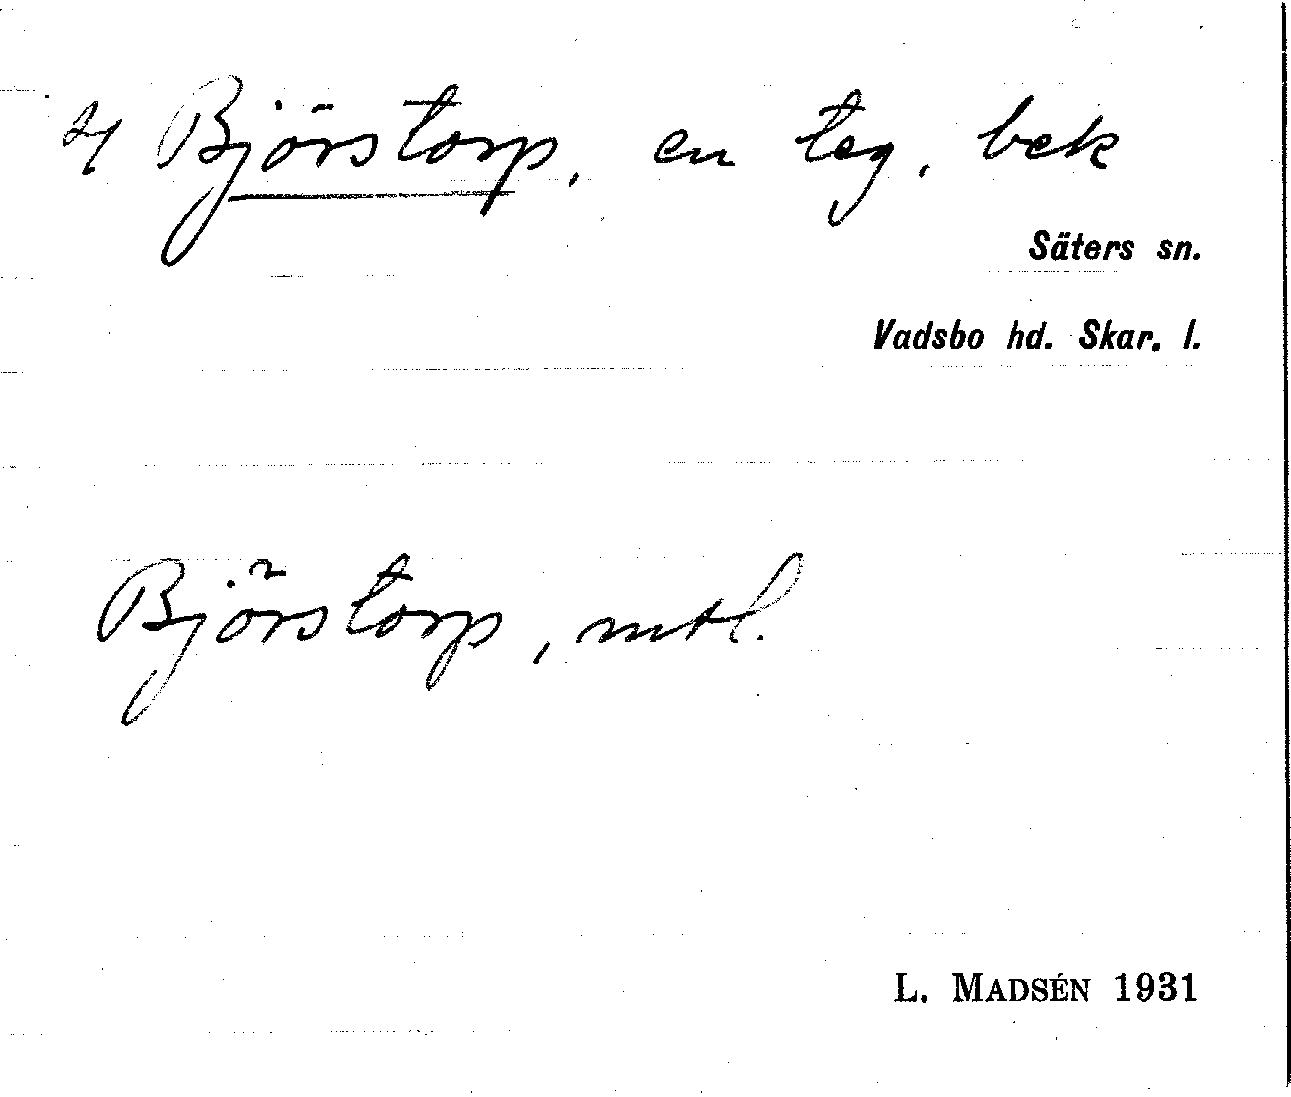 Björstorp, en teg, bek
Säters sn.
Vadsbo hd. Skar. l.
Björstorp, mtl.
L. MADSÉN 1931